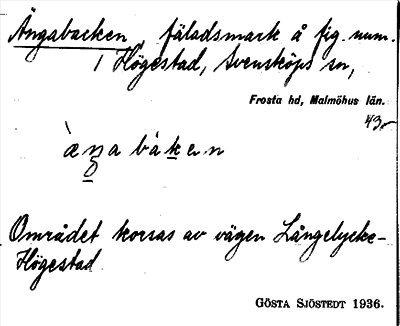 Ängabacken, fäladsmark å fig. num.
1 Högestad, Svensköps sn,
Frosta hd, Malmöhus län.
43.
àŋa bàken
Området korsas av vägen Långelycke-
Högestad
GÖSTA SJÖSTEDT 1936.